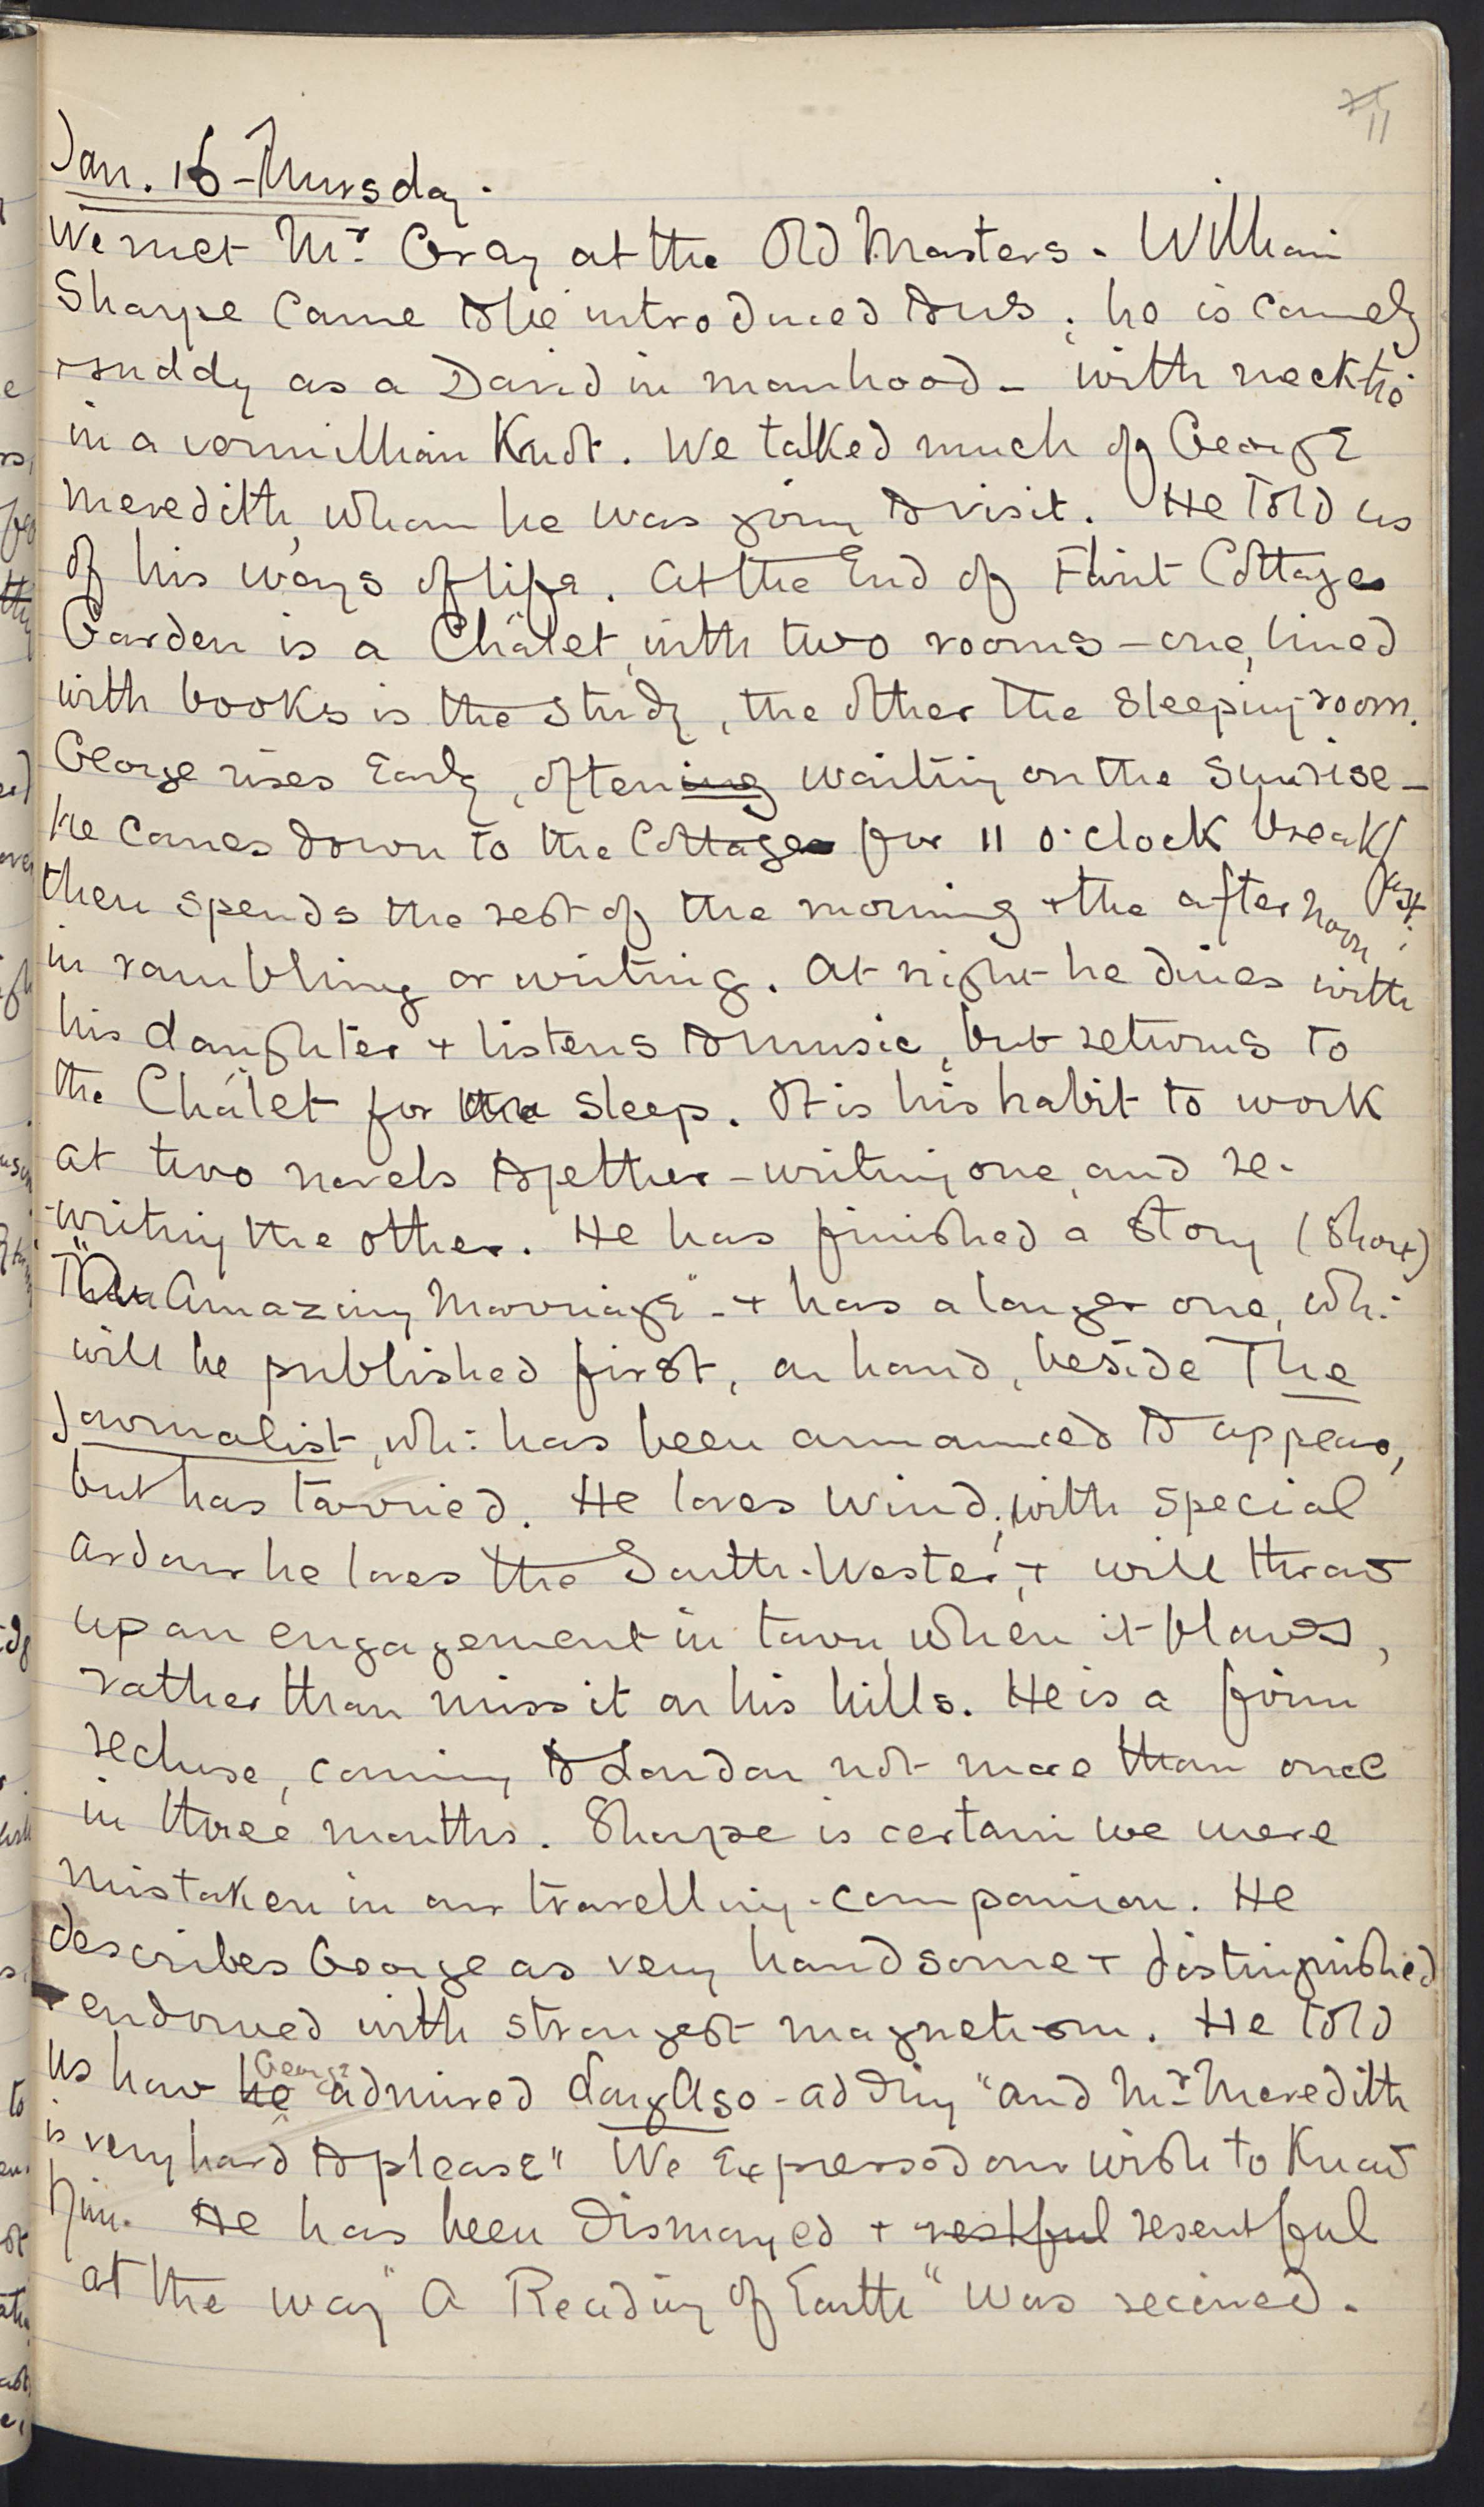 11
Jan. 16 - Thursday.
We met Mr. Gray at the Old Masters. William
Sharpe came & he introduced to us; he is comely
& ruddy as a David in manhood - with necktie
in a vermillion Knot. We talked much of George
Meredith, whom he was going to visit. He told us
of his ways of life. At the End of Flint Cottage
Garden is a Châlet, with two rooms - one, lined
with books is the study, the other the sleeping-room.
George rises Early, oftening waiting on the sunrise -
he comes down to the Cottage for 11 o'clock breakfast.
then spends the rest of the morning & the afternoon
in rambling or writing. At night he dines with
his daughter & listens to music, but returns to
the Châlet for the sleep. It is his habit to work
at two novels together - writing one, and re-
-writing the other. He has finished a story (short)
"The Amazing Marriage" - & has a longer one, wh:
will be published first, on hand, beside The
Journalist, wh: has been announced to appear,
but has tarried. He loves wind; with special
ardour he loves the South-Wester, & will throw
up an engagement in town, when it blows,
rather than miss it on his hills. He is a firm
recluse, coming to London not more than once
in three months. Sharpe is certain we were
mistaken in our travelling-companion. He
describes George as very handsome & distinguished
& endowed with strangest magnetism. He told
us how he George admired Long Ago - adding "and Mr. Meredith
is very hard to please" We Expressed our wish to Know
him. He has been dismayed & restful resentful
at the way "A Reading of Earth" was received.